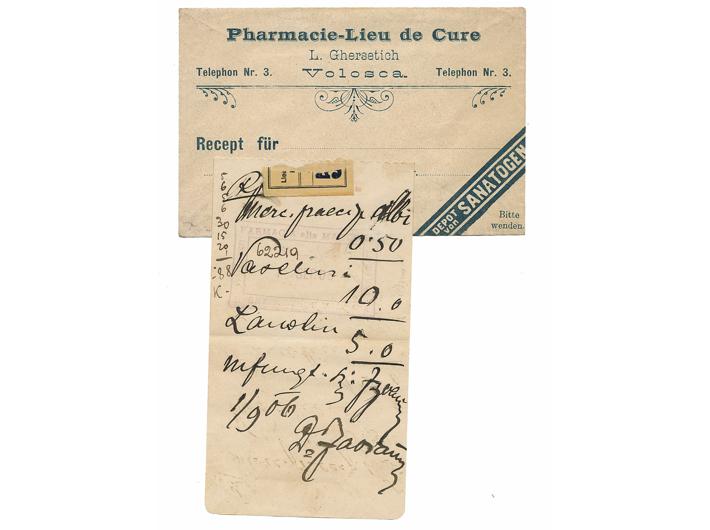 Pharmacie-Lieu de Cure
L. Ghersetich
Telephon Nr. 3. Volosca. Telephon Nr. 3.
Recept für
DEPOT von SANATOGEN
Bitte
wenden.
Rp
Merc. praecip. albi
0.50
62219
Vaselini
10.0
Lanolin
5.0
m f ungt.
1/9 06
Dr
30
15
20
88
K-